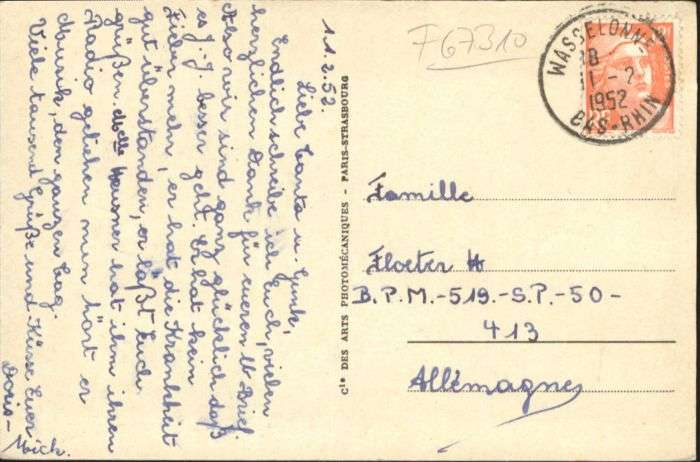 11.2.52.
Liebe Tanta u. Gunk,
Endlich schreibe ich Euch, vielen
herzlichen Dank für eueren lb Brief.
Also wir sind ganz glücklich daß
es J.J. besser geht. Er hat kein
Fieber mehr, er hat die Krankheit
gut überstanden, er läßt Euch
grüßen. Molle Hausner hat ihm ihren
Radio geliehen nun hört er
Musik, den ganzen Tag.
Viele tausend Grüße und Küsse Euer
Doris-
Mich.
Cie DES ARTS PHOTOMÉCANIQUES - PARIS-STRASBOURG
F67310
WASSELONNE
18
11 - 2
1952
BAS-RHIN
Famille
Floeter H
B.P.M.-519.-S.P.-50-
413
Allémagne